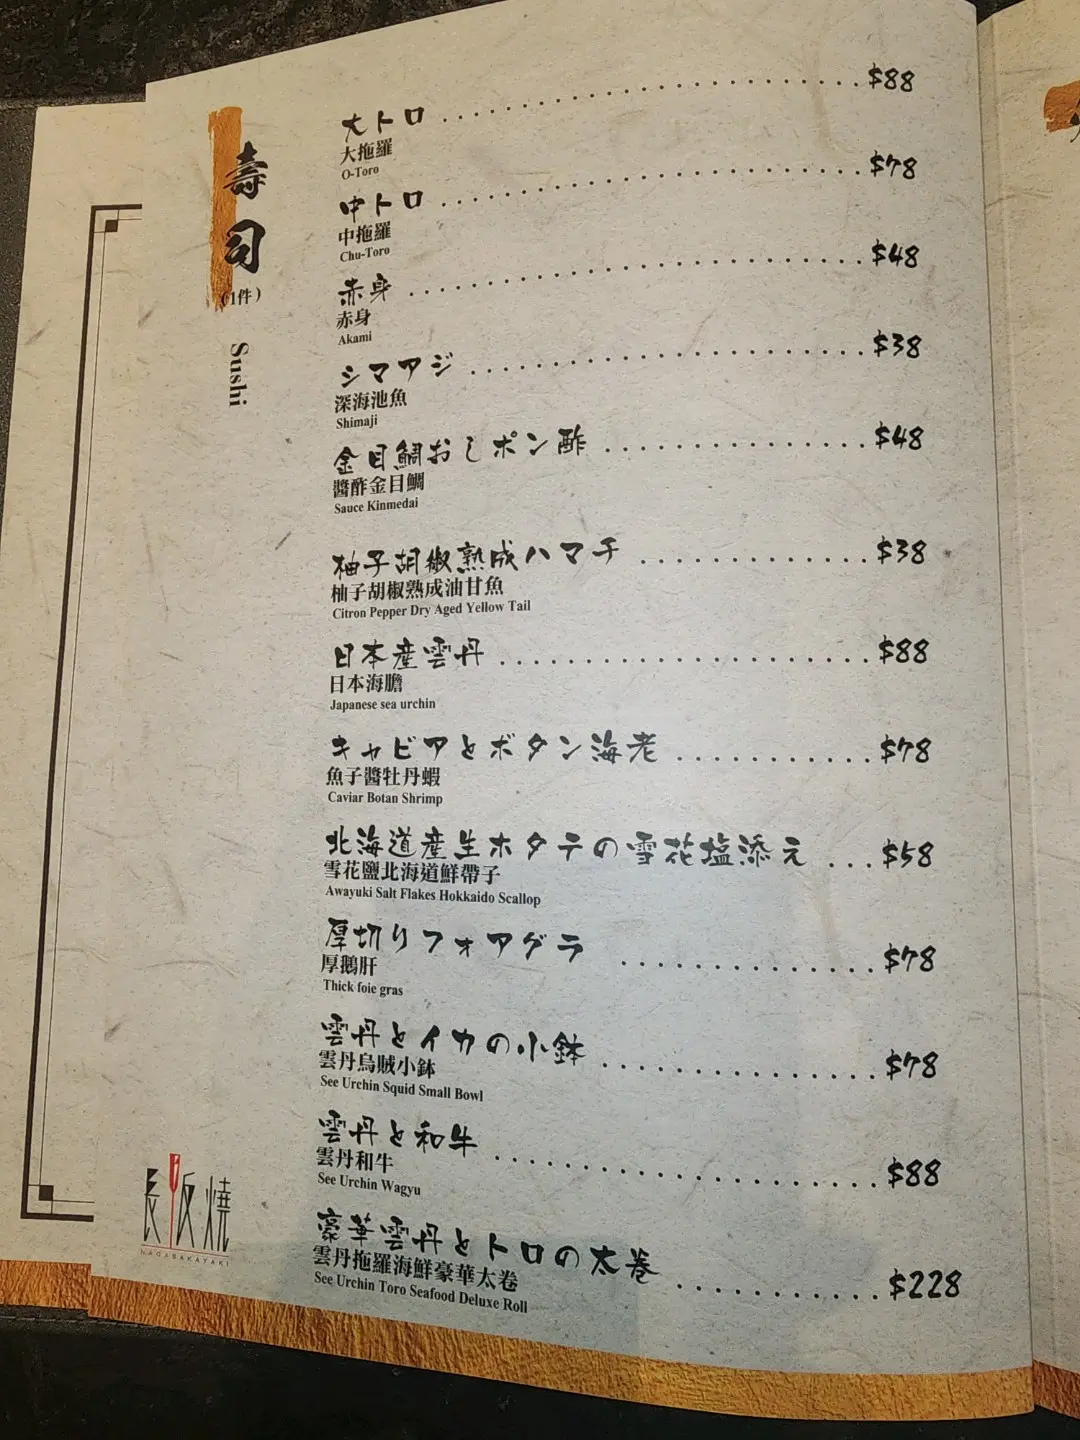 壽司
(1件)
Sushi
大トロ ........................ $88
大拖羅
O-Toro
中トロ ........................ $78
中拖羅
Chu-Toro
赤身 ........................ $48
赤身
Akami
シマアジ ........................ $38
深海池魚
Shimaji
金目鯛おしポン酢 ............... $48
醬酢金目鯛
Sauce Kinmedai
柚子胡椒熟成ハマチ ............. $38
柚子胡椒熟成油甘魚
Citron Pepper Dry Aged Yellow Tail
日本産雲丹 ..................... $88
日本海膽
Japanese sea urchin
キャビアとボタン海老 ........... $78
魚子醬牡丹蝦
Caviar Botan Shrimp
北海道産生ホタテの雪花塩添え ... $58
雪花鹽北海道鮮帶子
Awayuki Salt Flakes Hokkaido Scallop
厚切りフォアグラ .............. $78
厚鵝肝
Thick foie gras
雲丹とイカの小鉢 ............... $78
雲丹烏賊小鉢
See Urchin Squid Small Bowl
雲丹と和牛 ..................... $88
雲丹和牛
See Urchin Wagyu
豪華雲丹とトロの太巻 ........... $228
雲丹拖羅海鮮豪華太卷
See Urchin Toro Seafood Deluxe Roll
長坂燒
NAGASAKAYAKI